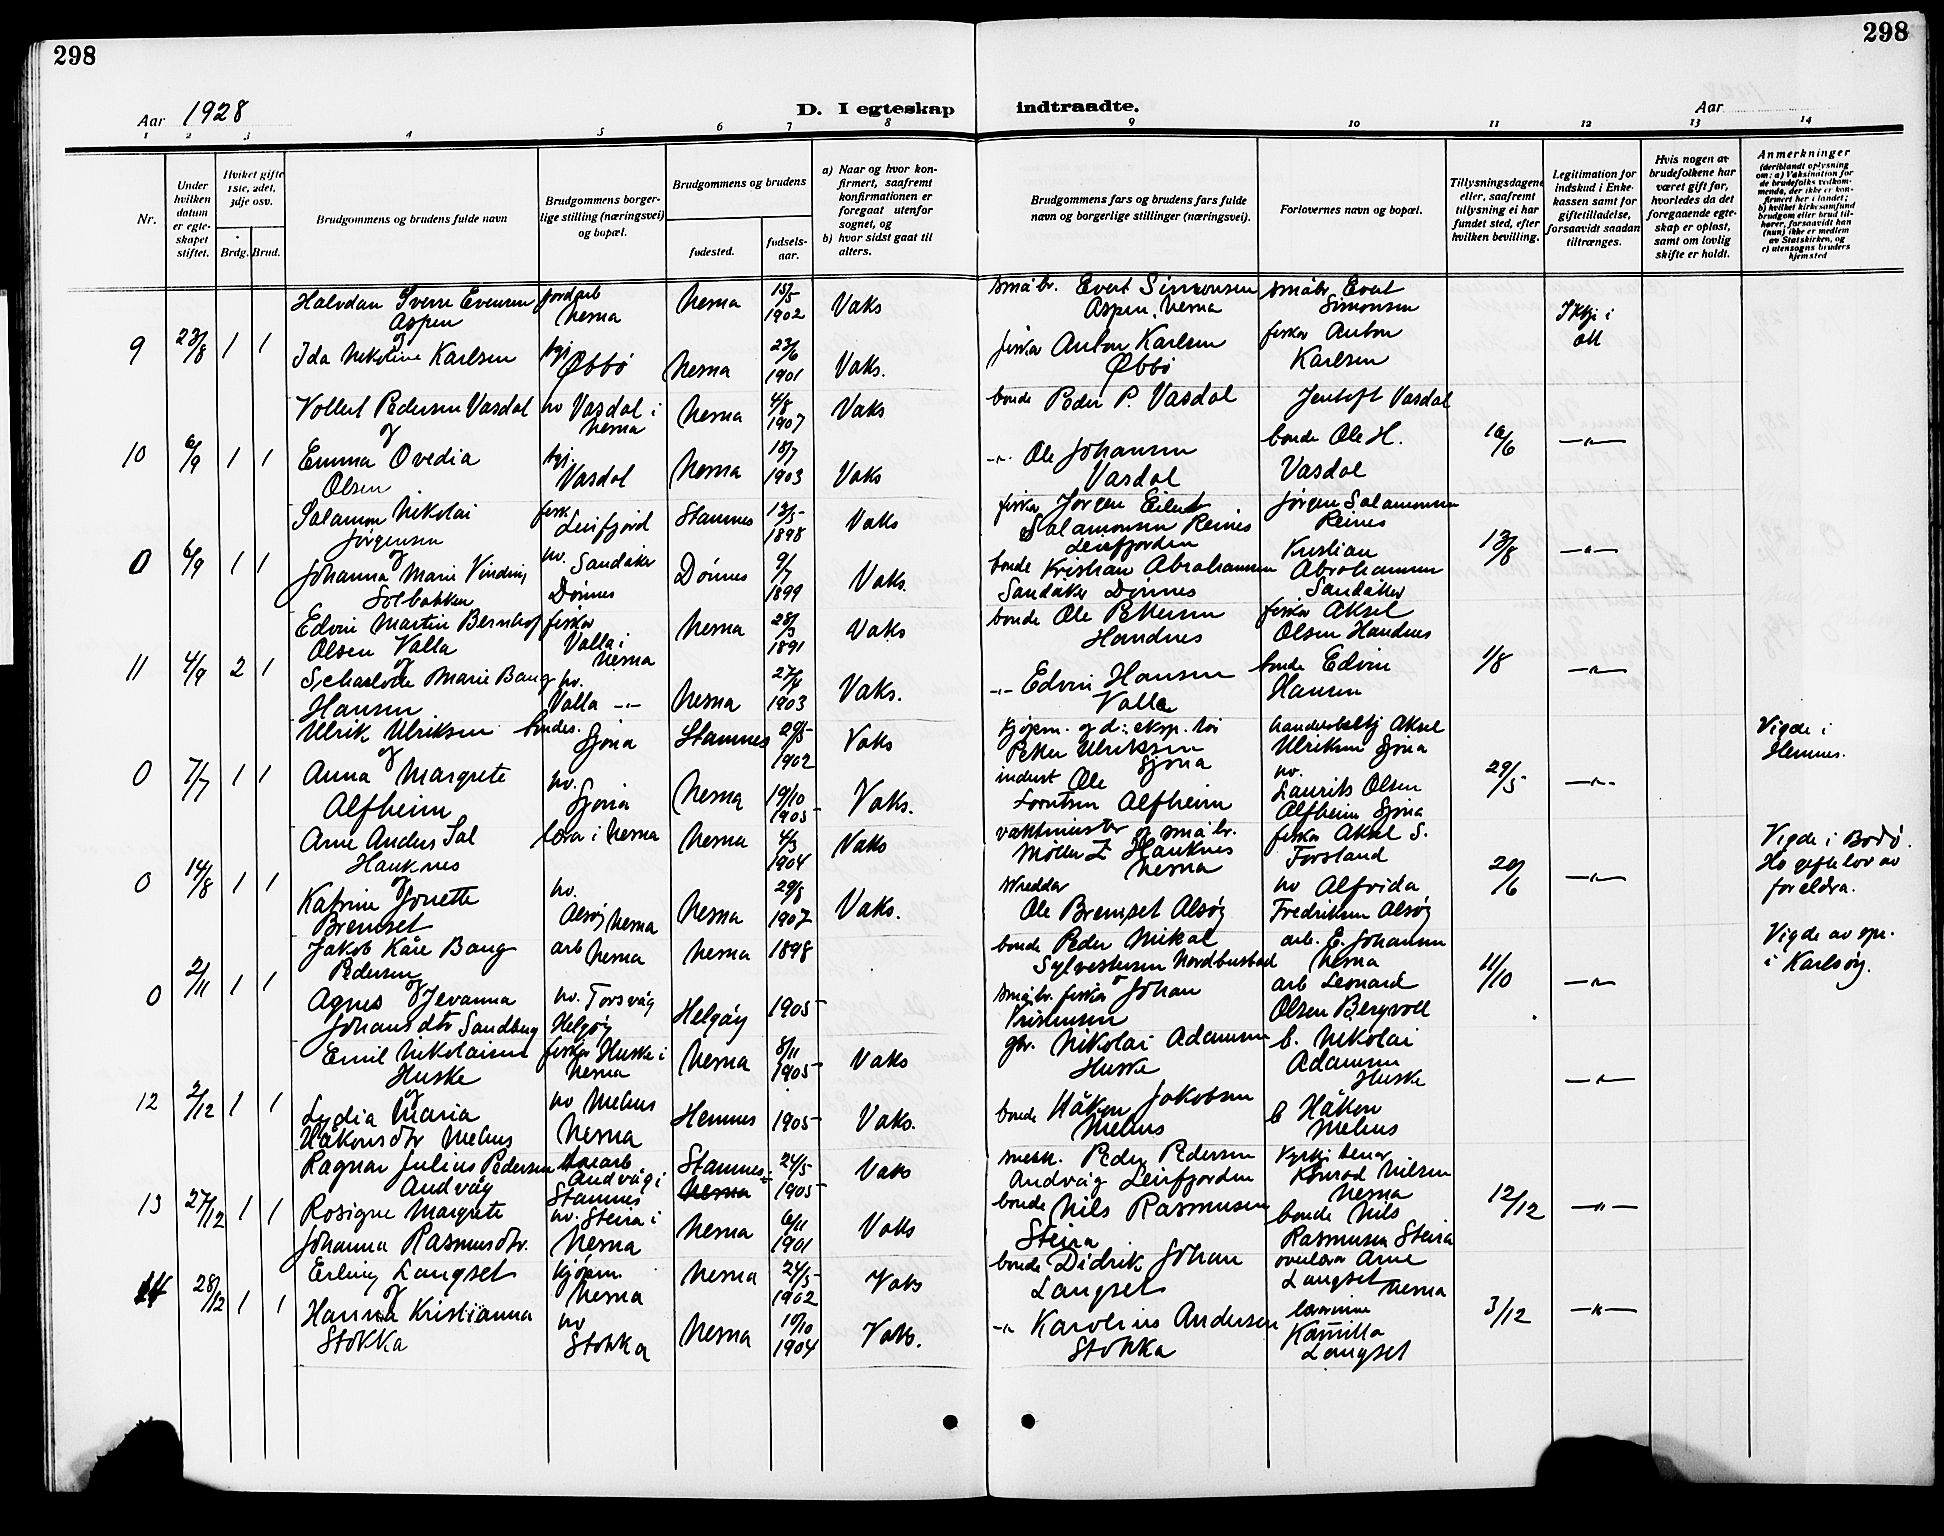 298
298
Aar 1928
D. I egteskap indtraadte.
Aar
1 2 3 4 5 6 7 8 9 10 11 12 13 14
Nr.
Under hvilken datum er egteskapet stiftet.
Hvilket gifte 1ste, 2det, 3dje osv.
Brdg. Brud.
Brudgommens og brudens fulde navn
Brudgommens borgerlige stilling (næringsvei) og bopæl.
Brudgommens og brudens
fødested.
fødselsaar.
a) Naar og hvor konfirmert, saafremt konfirmationen er foregaat utenfor sognet, og
b) hvor sidst gaat til alters.
Brudgommens fars og brudens fars fulde navn og borgerlige stillinger (næringsvei).
Forlovernes navn og bopæl.
Tillysningsdagene eller, saafremt tillysning ei har fundet sted, efter hvilken bevilling.
Legitimation for indskud i Enkekassen samt for giftetilladelse, forsaavidt saadan tiltrænges.
Hvis nogen av brudefolkene har været gift før, hvorledes da det foregaaende egteskap er opløst, samt om lovlig skifte er holdt.
Anmerkninger
(deriblandt oplysning om: a) Vaksination for de brudefolks vedkommende, der ikke er konfirmert her i landet; b) hvilket kirkesamfund brudgom eller brud tilhører, forsaavidt han (hun) ikke er medlem av Statskirken, og c) utensogns bruders hjemsted
Halvdan Sverre Evensen jordarb Nesna 15/5 1902 Vaks småbr. Evert Simonsen småbr. Evert
Aspen Nesna Aspen, Nesna Simonsen
og
9 23/8 1 1 Ida Nikoline Karlsen Øbbø Nesna 23/6 1901 Vaks. fisker Anton Karlsen Øbbø fisker Anton Karlsen
Vollert Pedersen Vasdal Vasdal i Nesna Nesna 4/8 1907 Vaks bonde Peder P. Vasdal Jentoft Vasdal
og
10 6/9 1 1 Emma Ovedia Olsen Vasdal Nesna 18/7 1903 Vaks Ole Johansen Vasdal bonde Ole H. Vasdal 16/6 -"-
Salamon Nikolai Jørgensen fisk Leirfjord Stamnes 13/5 1898 Vaks fisker Jørgen Eilert Salamonsen Reines Leirfjorden Jørgen Salamonsen Reines
og
0 6/9 1 1 Johanna Marie Vinding Solbakken Sandåker Dønnes Dønnes 9/7 1899 Vaks. bonde Kristian Abrahamsen Sandåker Dønnes Kristian Abrahamsen Sandåker 13/8 -"-
Edvin Martin Bernhof Olsen Valla fisker Valla i Nesna Nesna 28/3 1891 Vaks bonde Ole Pettersen Handnes fisker Aksel Olsen Handnes
og
11 4/9 2 1 Scharlotte Marie Bang Hansen Valla -"- Nesna 27/4 1903 Vaks. -"- Edvin Hansen Valla bonde Edvin Hansen 1/8 -"-
Ulrik Ulriksen bondes. Sjona Stamnes 29/5 1902 Vaks Petter Ulriksen Sjona Aksel Ulriksen Sjona Vigde i Hemnes.
og
0 7/7 1 1 Anna Margrete Alfheim Sjona Nesna 19/10 1905 Vaks. Ole Alfheim Laurits Olsen Alfheim Sjona 29/5 -"-
Arne Anders Sal Hauknes lærar i Nesna Nesna 4/3 1904 Vaks vaktmester og småbr. Møller Z Hauknes Nesna fisker Aksel S. Forsland Vigde i Bodø.
og
0 14/8 1 1 Katrine Jonette Bremset Alsøy Nesna Nesna 29/8 1907 Vaks. Ole Bremset Alsøy Alfrida Fredriksen Alsøy 20/6 -"- Ho giftelov av foreldra.
Jakob Kåre Bang Pedersen arb Nesna Nesna 1898 bonde Peder Mikal Sylvestersen Nordbustad arb. E. Johansen Nesna Vigde av spr. i Karlsøy.
og
0 2/11 1 1 Agnes Jevanna Johansdtr Sandberg Torsvåg Helgøy Helgøy 1905 småbr. fisker Johan Kristensen arb Leonard Olsen Bergvoll 11/10 -"-
Emil Nikolaisen Huske fisker Huske i Nesna Nesna 8/11 1905 Vaks gbr. Nikolai Adamsen Huske b. Nikolai Adamsen Huske
og
12 2/12 1 1 Lydia Maria Håkonsdtr Mehus Mehus Nesna Hemnes 1905 Vaks. bonde Håkon Jakobsen Mehus b Håkon Mehus -"-
Ragnar Julius Pedersen Andvåg Andvåg i Stamnes Stamnes Nesna 24/5 1905 Vaks Peder Pedersen Andvåg Leirfjorden Konrad Nilsen Nesna
13 27/12 1 1 Rosigne Margrete Johanna Rasmusdtr. Steira i Nesna Nesna 6/11 1901 Vaks bonde Nils Rasmussen Steira bonde Nils Rasmussen Steira 12/12 -"-
Erling Langset kjøpm. Nesna Nesna 24/5 1902 Vaks bonde Didrik Johan Langset overlærar Arne Langset Nesna
og
14 28/12 1 1 Hanna Kristianna Stokka Stokka Nesna 10/10 1904 Vaks. -"- Karolius Andersen Stokka Kamilla Langset 3/12 -"-